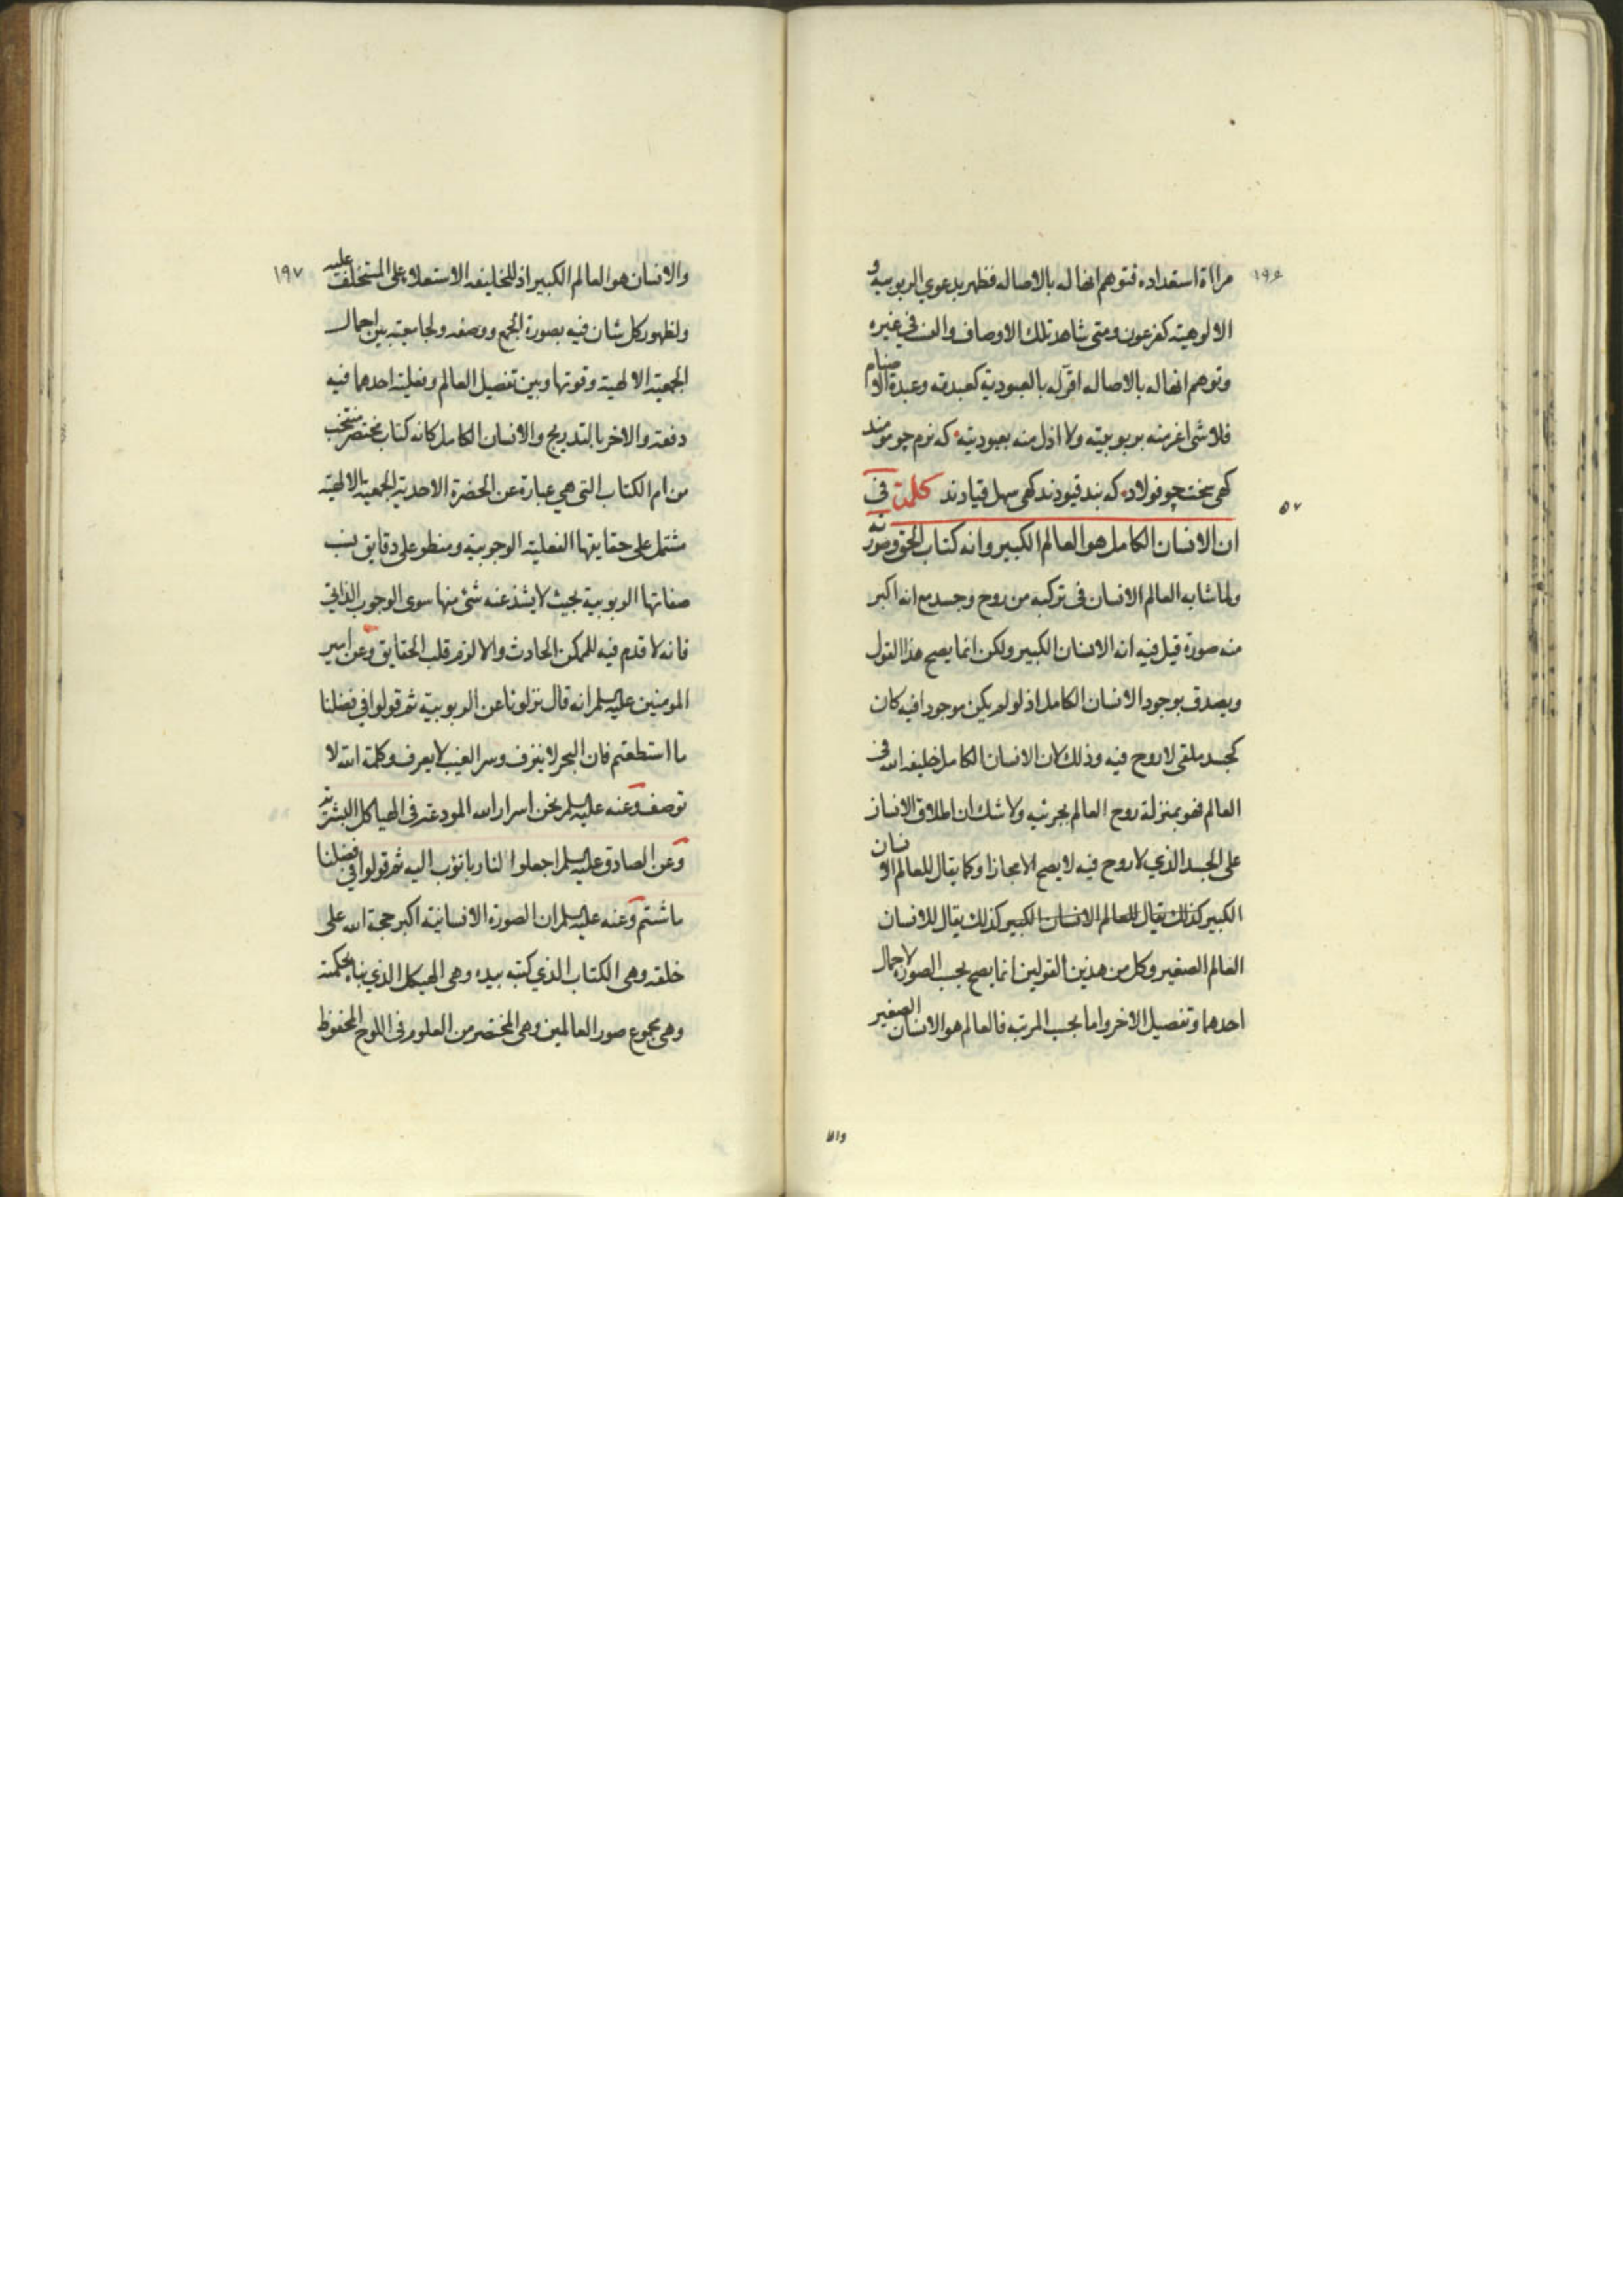 ١٩٦
مراة استعداده فتوهم انها له بالاصاله فظهر بدعوي الربوبية و
الالوهية كفرعون ومتى شاهد تلك الاوصاف والعت في غيره
وتوهم انها له بالاصاله اقر له بالعبودية كعبدته وعبدة الاصنام
فلا شي اعز منه بربوبيته ولا اذل منه بعبوديته كه نرم چو مومند
كهى سخت چو فولاد كه بند قيودند كهى سهل قيادند كلمة في
٥٧
ان الانسان الكامل هو العالم الكبير وانه كتاب الحق وصورته
ولما شابه العالم الانسان فى تركبه من روح وجسد مع انه اكبر
منه صورة قيل فيه انه الانسان الكبير ولكن انما يصح هذا القول
ويصدق بوجود الانسان الكامل اذ لو لم يكن موجودا فيه كان
كجسد ملقى لا روح فيه وذلك لان الانسان الكامل خليفه الله في
العالم فهو بمنزلة روح العالم بجرئيه ولا شك ان اطلاق الانسان
على الجسد الذي لا روح فيه لا يصح الا مجازا وكما يقال للعالم الانسان
الكبير كذلك يقال للعالم الانسان الكبير كذلك يقال للانسان
العالم الصغير وكل من هذين القولين انما يصح بحسب الصورة لاجمال
احدهما وتفصيل الاخر واما بحسب المرتبه فالعالم هو الانسان الصغير
والا
١٩٧
والانسان هو العالم الكبير اذ للخليفه الاستعلاء على المستخلف عليه
ولظهور كل شان فيه بصورة الجمع ووصفه ولجامعيته بين اجمال
الجمعية الالهية وقوتها وبين تفصيل العالم وفعليته احدهما فيه
دفعة والاخر بالتدريج والانسان الكامل كانه كتاب مختصر منتخب
من ام الكتاب التى هي عبارة عن الحضرة الاحدية الجمعية الالهية
مشتمل على حقايقها الفعلية الوجوبية ومنطو على دقايق نسب
صفاتها الربوبية بحيث لا يشذ عنه شئ منها سوى الوجوب الذاتي
فانه لا قدم فيه للممكن الحادث والا لزم قلب الحقايق وعن امير
المومنين عليه السلم انه قال نزلونا عن الربوبية ثم قولوا في فضلنا
ما استطعتم فان البحر لا ينزف وسر الغيب لا يعرف وكلمة الله لا
توصف وعنه عليه السلم نحن اسرار الله المودعة فى الهياكل البشرية
وعن الصادق عليه السلم اجعلوا لنا ربا نؤب اليه ثم قولوا في فضلنا
ما شئتم وعنه عليه السلم ان الصورة الانسانية اكبر حجة الله على
خلقه وهى الكتاب الذي كتبه بيده وهى الهيكل الذي بناه بحكمته
وهى مجموع صور العالمين وهى المختصر من العلوم فى اللوح المحفوظ